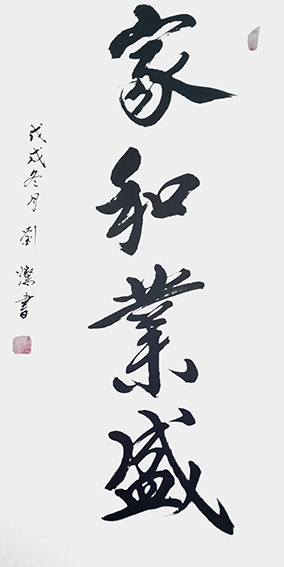 家和業盛
戊戌冬月劉燦書